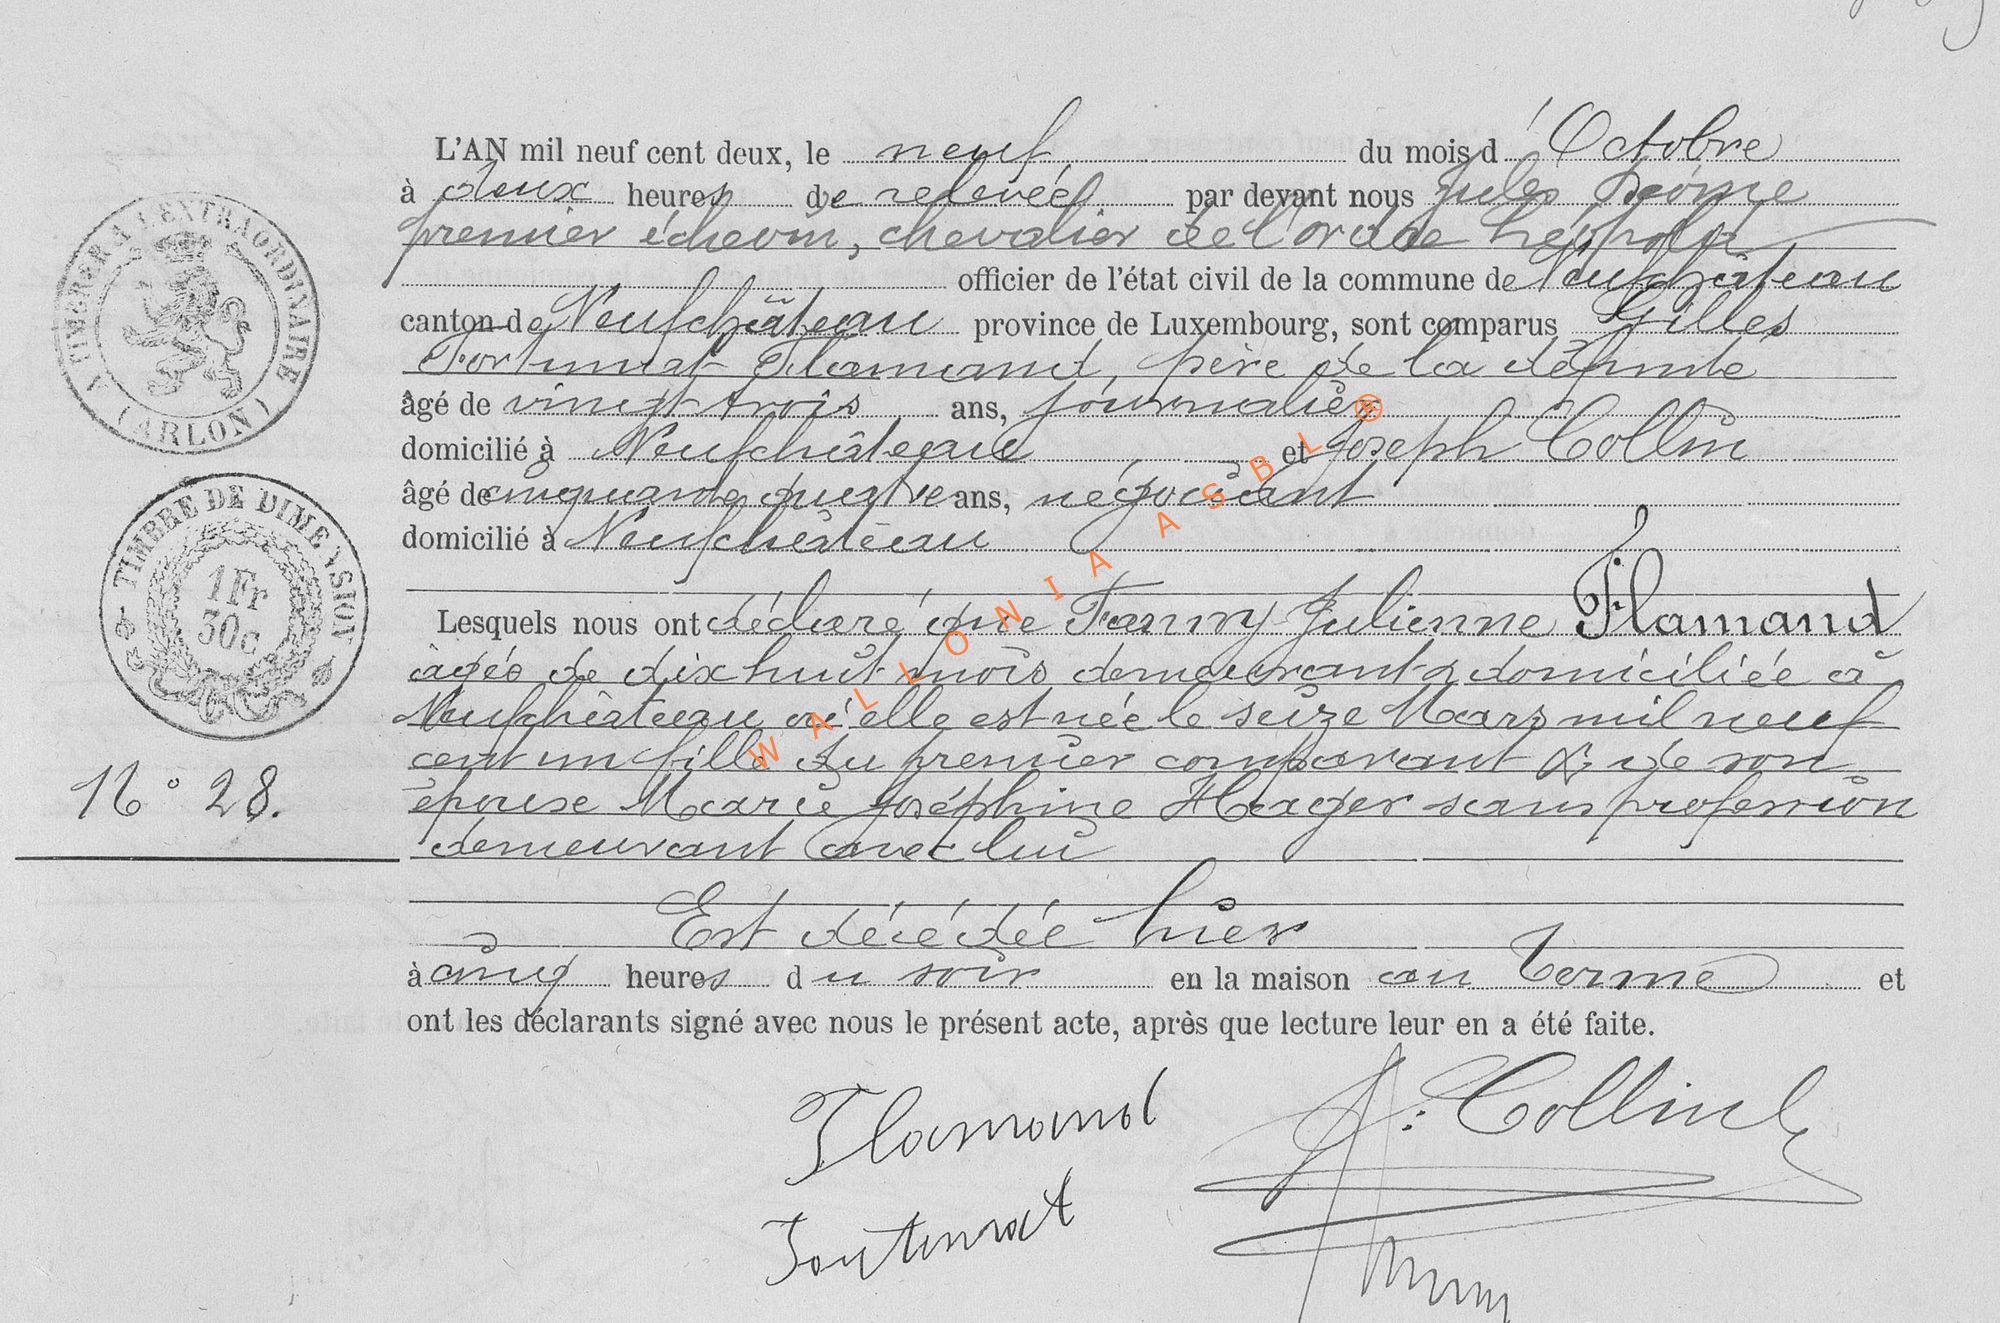 L'AN mil neuf cent deux, le neuf du mois d'Octobre
à deux heures de relevée par devant nous Jules
premier échevin, chevalier de l'ordre Léopold
officier de l'état civil de la commune de Neufchâteau
canton de Neufchâteau province de Luxembourg, sont comparus Gilles
Fortunat Flamand, père de la défunte
âgé de vingt-trois ans, journalier
domicilié à Neufchâteau et Joseph Collin
âgé de cinquante quatre ans, négociant
domicilié à Neufchâteau
Lesquels nous ont déclaré que Fanny Julienne Flamand
âgée de dix huit mois demeurant & domiciliée à
Neufchâteau où elle est née le seize Mars mil neuf
cent un fille du premier comparant & de son
épouse Marie Joséphine Hager sans profession
demeurant avec lui
Est décédée hier
à cinq heures du soir en la maison au Terme et
ont les déclarants signé avec nous le présent acte, après que lecture leur en a été faite.
Flamand
J. Collin
A TIMBRER A L'EXTRAORDINAIRE
(ARLON)
TIMBRE DE DIMENSION
1 Fr
30 c.
N° 28.
WALLONIA ASBL ®